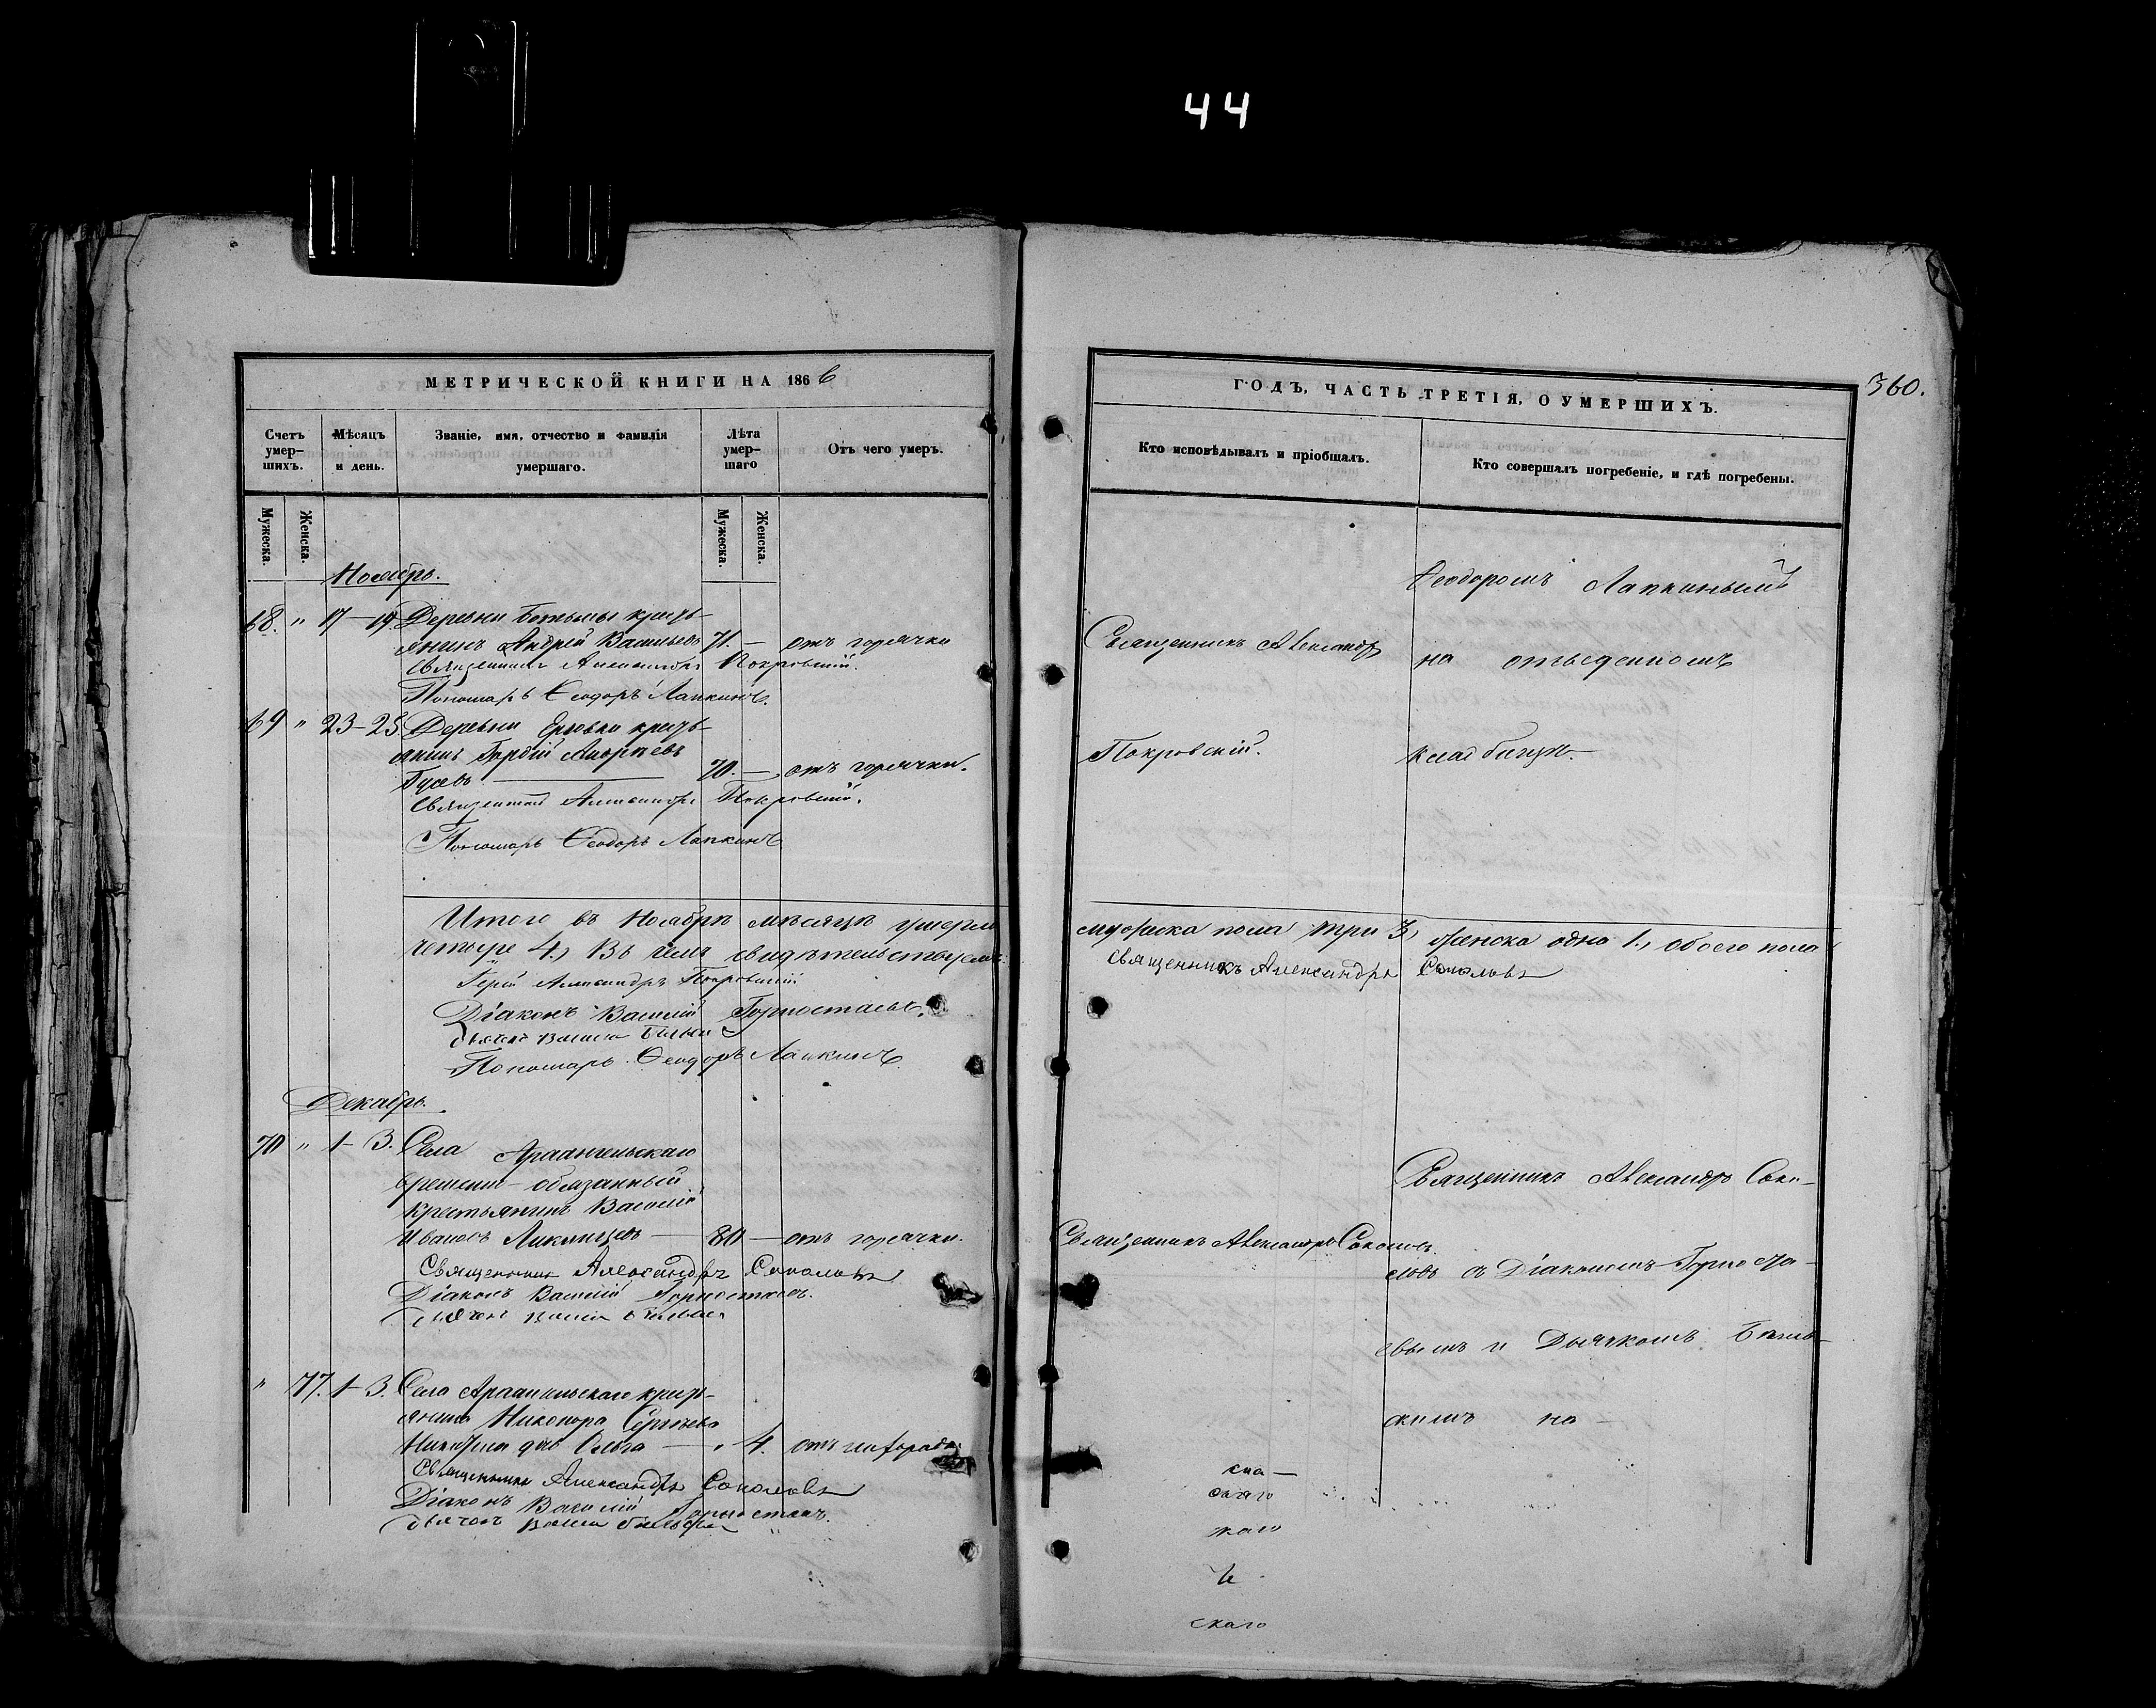 44
МЕТРИЧЕСКОЙ КНИГИ НА 1866
Счетъ умер-шихъ.
Мѣсяцъ и день.
Званіе, имя, отчество и фамилія умершаго.
Лѣта умер-шаго
Отъ чего умеръ.
Мужеска.
Женска.
Мужеска.
Женска.
Ноябрь.
68. " 17-19. Деревни крестъ-
янинъ Андрей Васильевъ 71. — отъ горячки
Священникъ Александръ Покровскій.
Пономарь Ѳеодоръ Лапкинъ.
69 " 23-25. Деревни крестъ-
янинъ Гордій
Гусевъ — 70. — отъ горячки.
Священникъ Александръ Покровскій.
Пономарь Ѳеодоръ Лапкинъ
Итого въ Ноябрѣ мѣсяцѣ умерло
четыре 4., Въ чемъ свидѣтельствуемъ:
Іерей Александръ Покровскій
Діаконъ Василій Горностаевъ.
Дьячекъ
Пономарь Ѳеодоръ Лапкинъ.
Декабрь.
70 " 1-3. Села Архангельскаго
временно-обязанный
крестьянинъ Василій
Ивановъ — 80 — отъ горячки.
Священникъ Александръ Соколовъ
Діаконъ Василій Горностаевъ.
Дьячекъ
" 77. 1-3. Села Архангельскаго крестъ-
янина Никонора Сергѣева
дочь Ольга — " 4. отъ
Священникъ Александръ Соколовъ
Діаконъ Василій Горностаевъ.
Дьячекъ
360.
ГОДЪ, ЧАСТЬ ТРЕТІЯ, О УМЕРШИХЪ.
Кто исповѣдывалъ и пріобщалъ.
Кто совершалъ погребеніе, и гдѣ погребены.
Ѳеодоромъ Лапкинымъ
Священникъ Александръ
на отведенномъ
Покровскій.
кладбищѣ.
мужеска пола три 3, женска одна 1., обоего пола
Священникъ Александръ Соколовъ
Священникъ Александръ Соко-
Священникъ Александръ Соколовъ.
ловъ съ Діакономъ Горноста-
евымъ и Дьячкомъ
скимъ на —
скаго